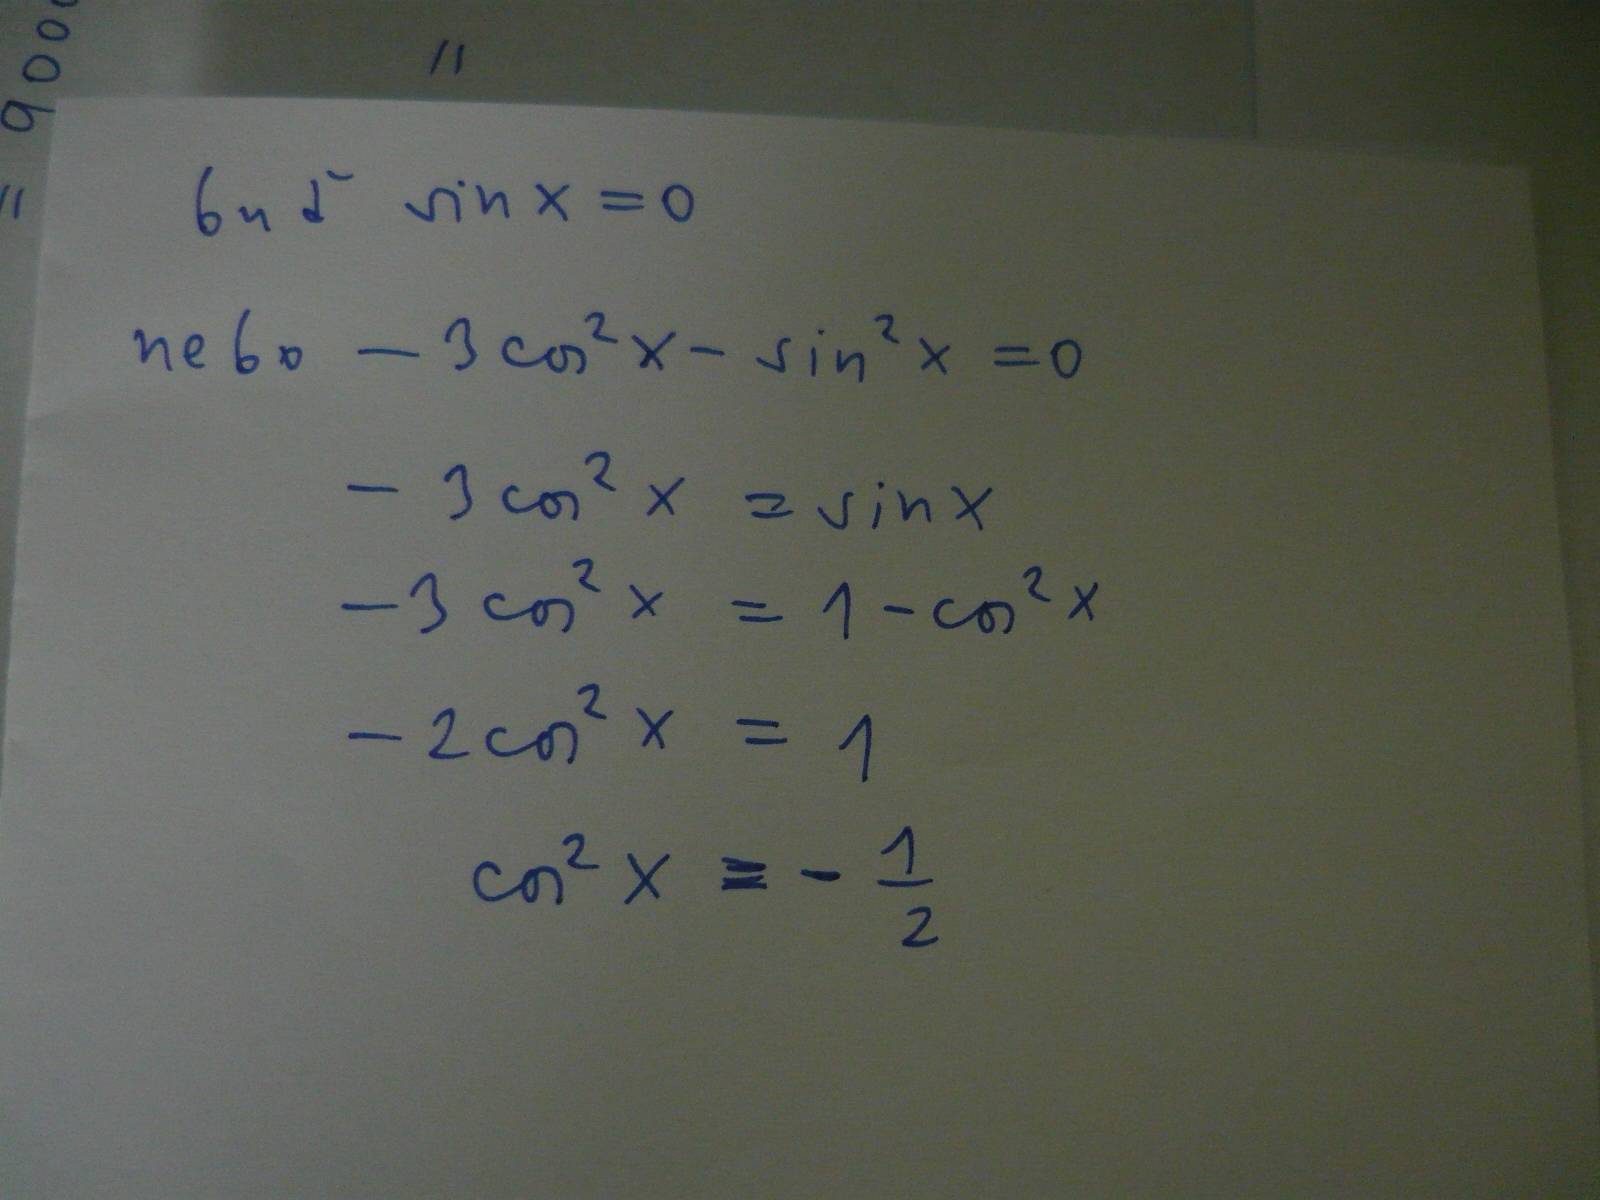 = 9000
"
buď sin x = 0
nebo - 3 cos² x - sin² x = 0
- 3 cos² x = sin x
- 3 cos² x = 1 - cos² x
- 2 cos² x = 1
cos² x = - 1/2